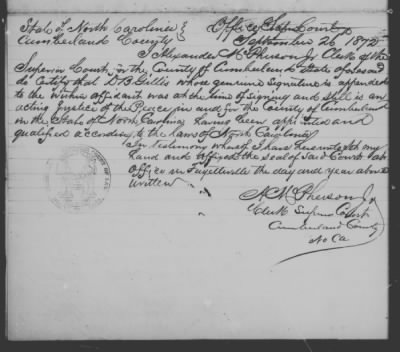 State of North Carolina }
Cumberland County } Office Clerk County
September 26 1872
I Alexander McPherson Jr Clerk of the
Superior Court for the County of Cumberland State aforesaid
do Certify that D B Gillis whose genuine Signature is appended
to the within affidavit was at the time of signing and still is an
acting Justice of the Peace in and for the County of Cumberland
in the State of North Carolina having been appointed and
qualified according to the laws of North Carolina
In testimony whereof I have hereunto set my
hand and affixed the seal of Said Court at
Office in Fayetteville the day and year above
written
A McPherson Jr
Clerk Superior Court
Cumberland County
No Ca